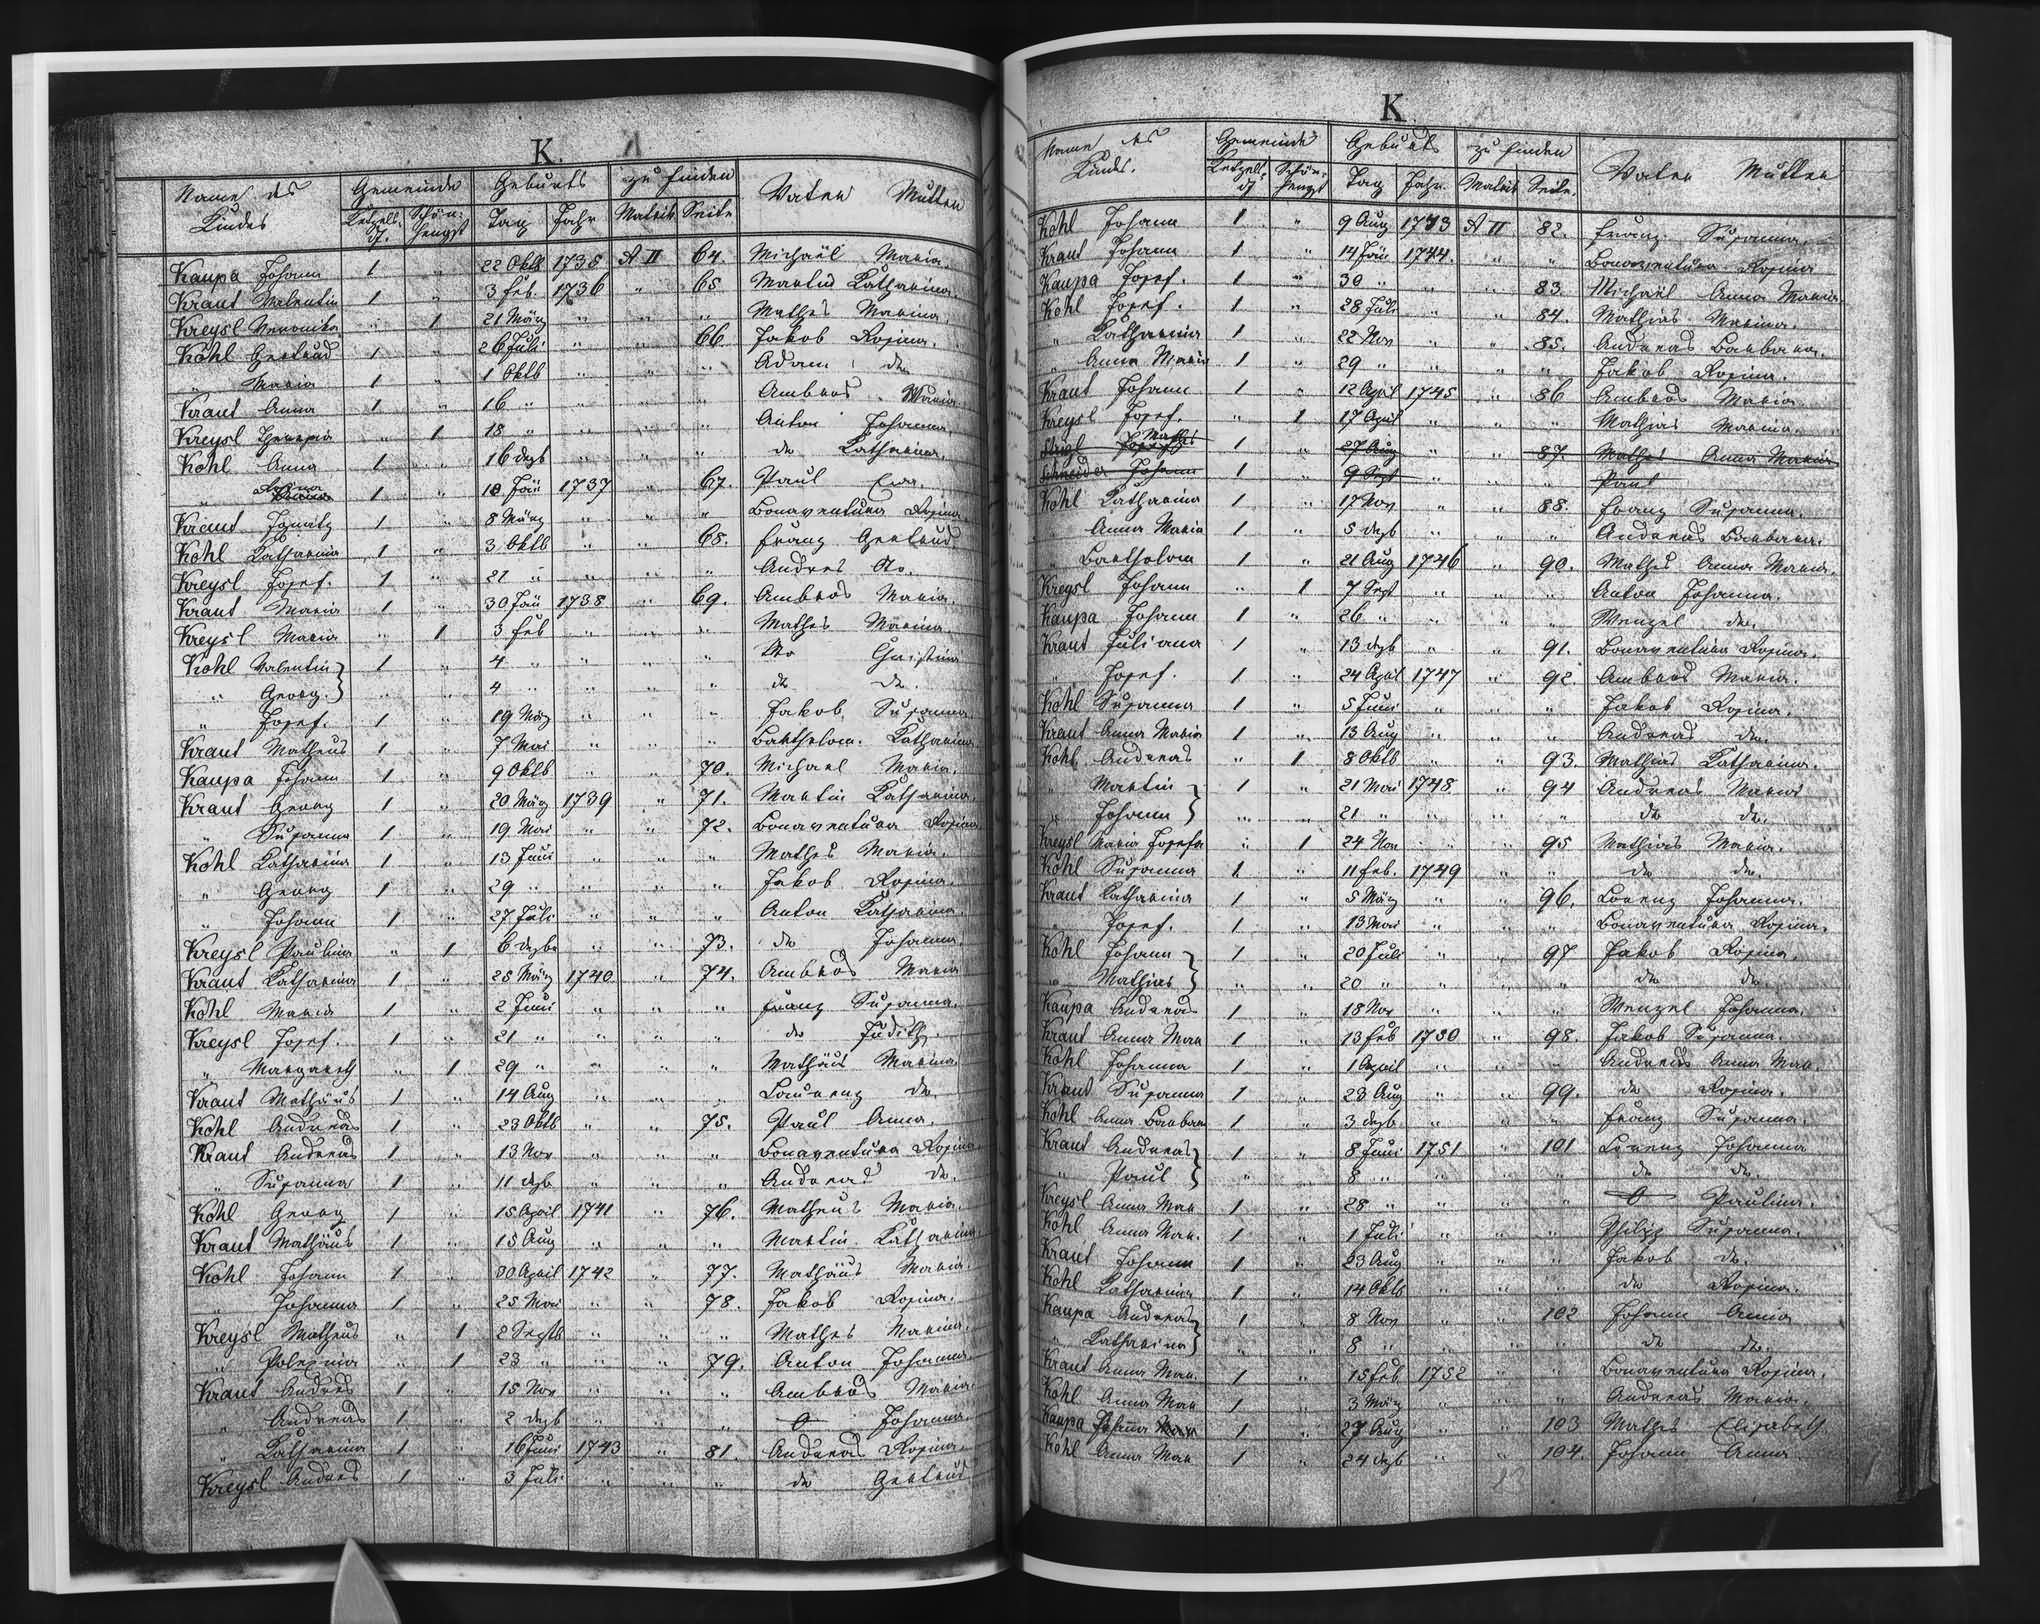 K.
Name des Kindes Gemeinde Geburts zu finden Vater Mutter
Ketzelsdf. Schönhengst Tag Jahr Matrik Seite
Kaupa Johann 1 " 22 Oktb 1735 A II 64. Michaël Maria.
Kraut Valentin 1 " 3 Feb. 1736 " 65. Martin Katharina.
Kreysl Veronika " 1 21 März " " " Mathes Marina.
Kohl Gertrud 1 " 26 Juli " " 66. Jakob Rosina.
" Maria 1 " 1 Oktb " " " Adam do
Kraut Anna 1 " 16 " " " " Ambros Maria
Kreysl Theresia " 1 18 " " " " Anton Johanna
Kohl Anna 1 " 16 dezb " " " do Katharina.
" Rosina 1 " 18 Jän 1737 " 67. Paul Eva.
Kraut Ignatz 1 " 8 März " " " Bonaventura Rosina
Kohl Katharina 1 " 3 Oktb " " 68. Franz Gertrud
Kreysl Josef. 1 " 21 " " " " Andres do.
Kraut Maria 1 " 30 Jän 1738 " 69. Ambros Maria.
Kreysl Maria " 1 3 Feb " " " Mathes Marina.
Kohl Valentin } 1 " 4 " " " " do Christina
" Georg. } " " 4 " " " " do do.
" Josef. 1 " 19 März " " " Jakob Susanna
Kraut Matheus 1 " 7 Mai " " " Bartholom. Katharina
Kaupa Johann 1 " 9 Oktb " " 70. Michael Maria.
Kraut Georg 1 " 20 März 1739 " 71. Martin Katharina.
" Susanna 1 " 19 Mai " " 72. Bonaventura Rosina
Kohl Katharina 1 " 13 Juni " " " Mathes Maria.
" Georg 1 " 29 " " " " Jakob Rosina.
" Johann 1 " 27 Juli " " " Anton Katharina.
Kreysl Paulina " 1 6 dezbr " " 73. do Johanna.
Kraut Katharina 1 " 25 März 1740 " 74. Ambros Maria
Kohl Maria 1 " 2 Juni " " " Franz Susanna.
Kreysl Josef. 1 " 21 " " " " do Judith
" Margareth " 1 29 " " " " Mathäus Marina.
Kraut Mathäus 1 " 14 Aug " " " Laurenz do.
Kohl Andreas 1 " 23 Oktb " " 75. Paul Anna.
Kraut Andreas 1 " 13 Nov " " " Bonaventura Rosina
" Susanna 1 " 11 dezb " " " Andreas do.
Kohl Georg 1 " 15 April 1741 " 76. Matheus Maria.
Kraut Mathäus 1 " 15 Aug " " " Martin Katharina
Kohl Johann 1 " 30 April 1742 " 77. Mathäus Maria.
" Johanna 1 " 25 Mai " " 78. Jakob Rosina.
Kreysl Matheus " 1 2 Septb " " " Mathes Marina.
" Polexina " 1 23 " " " 79. Anton Johanna.
Kraut Andres 1 " 15 Nov " " " Ambros Maria.
" Andreas 1 " 2 dezb " " " 0 Johanna.
" Katharina 1 " 16 Juni 1743 " 81. Andreas Rosina.
Kreysl Andres 1 " 3 Juli " " " do Gertrud.
K
Name des Kindes. Gemeinde Geburts zu finden Vater Mutter
Ketzelsdf Schönhengst Tag Jahr. Matrik Seite.
Kohl Johann 1 " 9 Aug 1743 A II 82. Franz Susanna.
Kraut Johann 1 " 14 Jän 1744. " " Bonaventura Rosina
Kaupa Josef. 1 " 30 " " " 83. Michaël Anna Maria
Kohl Josef. 1 " 28 Juli " " 84. Mathias Marina.
" Katharina 1 " 22 Nov " " 85. Andreas Barbara.
" Anna Maria 1 " 29 " " " " Jakob Rosina.
Kraut Johann 1 " 12 April 1745 " 86 Ambros Maria.
Kreysl Josef. " 1 17 April " " " Mathias Marina.
Mathes 1 " 27 Aug " " 87. Mathes Anna Maria
Schneider Johann 1 " 9 Sept " " " Paul
Kohl Katharina 1 " 17 Nov " " 88. Franz Susanna.
" Anna Maria 1 " 5 dezb " " " Andreas Barbara.
" Bartholom 1 " 21 Aug 1746 " 90. Mathes Anna Maria.
Kreysl Johann " 1 7 Sept " " " Anton Johanna.
Kaupa Johann 1 " 26 " " " " Wenzel do.
Kraut Juliana 1 " 13 dezb " " 91. Bonaventura Rosina.
" Josef. 1 " 24 April 1747 " 92. Ambros Maria.
Kohl Susanna 1 " 5 Juni " " " Jakob Rosina.
Kraut Anna Maria 1 " 13 Aug " " " Andreas do.
Kohl Andreas " 1 8 Oktb " " 93. Mathias Katharina.
" Martin } 1 " 21 Mai 1748. " 94 Andreas Maria
" Johann } " " 21 " " " " do do.
Kreysl Maria Josefa " 1 24 Nov " " 95 Mathias Maria.
Kohl Susanna 1 " 11 Feb. 1749 " " do do.
Kraut Katharina 1 " 5 März " " 96. Lorenz Johanna.
" Josef. 1 " 13 Mai " " " Bonaventura Rosina.
Kohl Johann } 1 " 20 Juli " " 97 Jakob Rosina.
" Mathias } " " 20 " " " " do do.
Kaupa Andreas 1 " 18 Nov " " " Wenzel Johanna.
Kraut Anna Mar 1 " 13 Feb 1750 " 98. Jakob Susanna.
Kohl Johanna 1 " 1 April " " " Andreas Anna Mar.
Kraut Susanna 1 " 28 Aug " " 99. do Rosina.
Kohl Anna Barbara 1 " 3 dezb " " " Franz Susanna.
Kraut Andreas } 1 " 8 Juni 1751 " 101 Lorenz Johanna
" Paul } " " 8 " " " " do do.
Kreysl Anna Mar 1 " 28 " " " " 0 Paulina.
Kohl Anna Mar. 1 " 1 Juli " " " Philipp Susanna.
Kraut Johann 1 " 23 Aug " " " Jakob do.
Kohl Katharina 1 " 14 Oktb " " " do Rosina.
Kaupa Andreas } 1 " 8 Nov " " 102 Johann Anna
" Katharina } " " 8 " " " " do do.
Kraut Anna Mar. 1 " 15 Feb 1752 " " Bonaventura Rosina.
Kohl Anna Mar 1 " 3 März " " " Andreas Maria.
Kaupa Johanna 1 " 27 Aug " " 103 Mathes Elisabeth
Kohl Anna Mar 1 " 24 dezb " " 104. Johann Anna
23